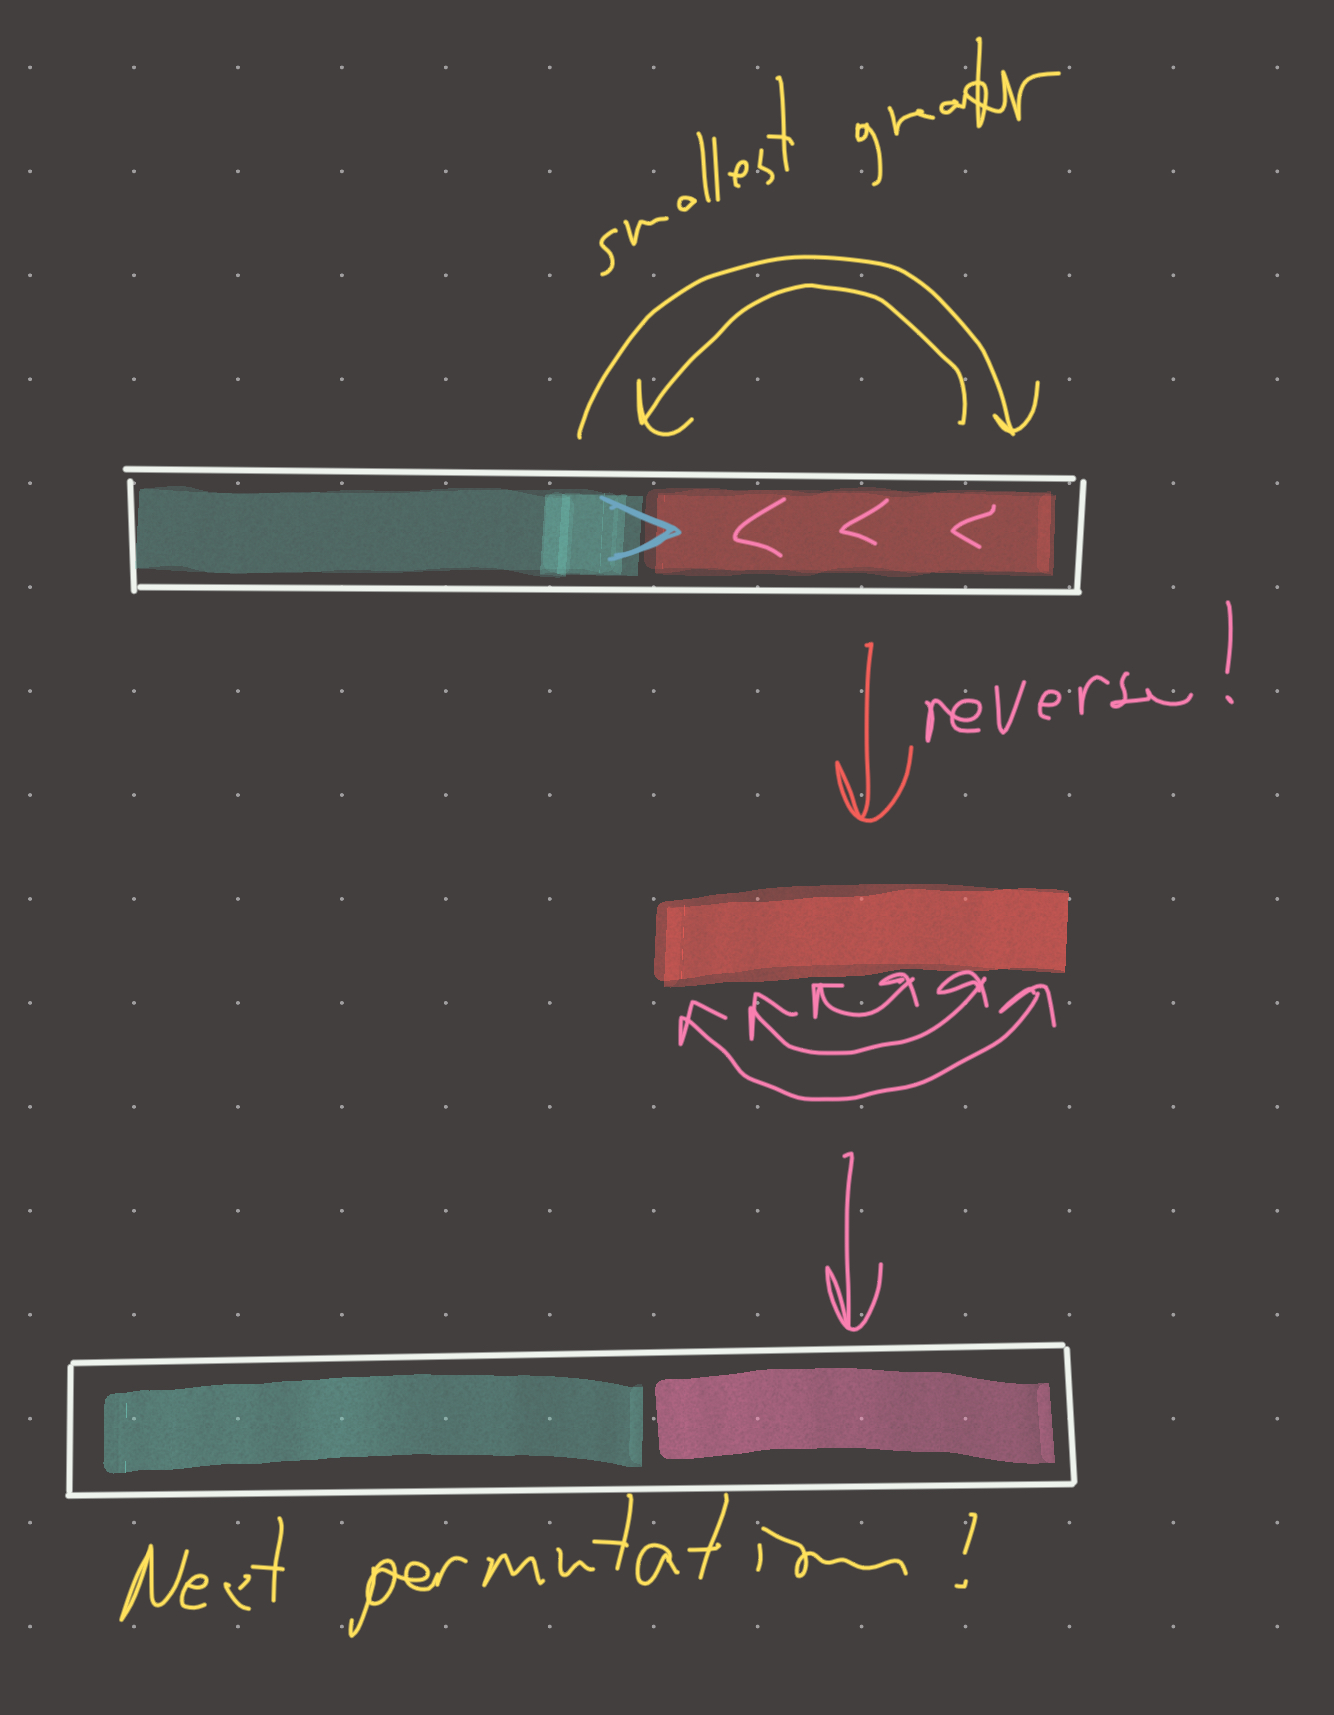 smallest greater
> < < <
reverse!
Next permutation!